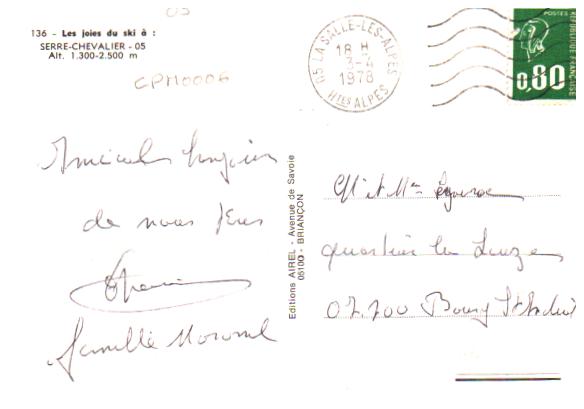 136 - Les joies du ski à :
SERRE-CHEVALIER - 05
Alt. 1.300-2.500 m
CPM0006
05 LA SALLE-LES-ALPES
18 H
3-4
1978
HTES ALPES
POSTES
REPUBLIQUE FRANÇAISE
0,80
de nous
famille
Editions AIREL - Avenue de Savoie
05100 - BRIANÇON
M et Mme
quartier la
07.700 Bourg St Andéol